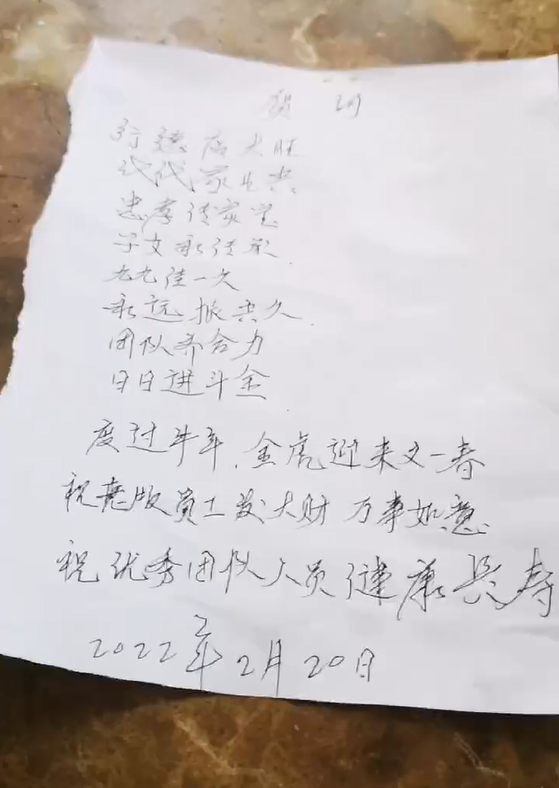 贺 词
行德店大旺
代代家业兴
忠孝传家宝
子文永传承
九九佳一久
永远振兴久
团队齐合力
日日进斗金
度过牛年.金虎迎来又一春
祝老版员工发大财 万事如意
祝优秀团队人员健康长寿
2022年2月20日